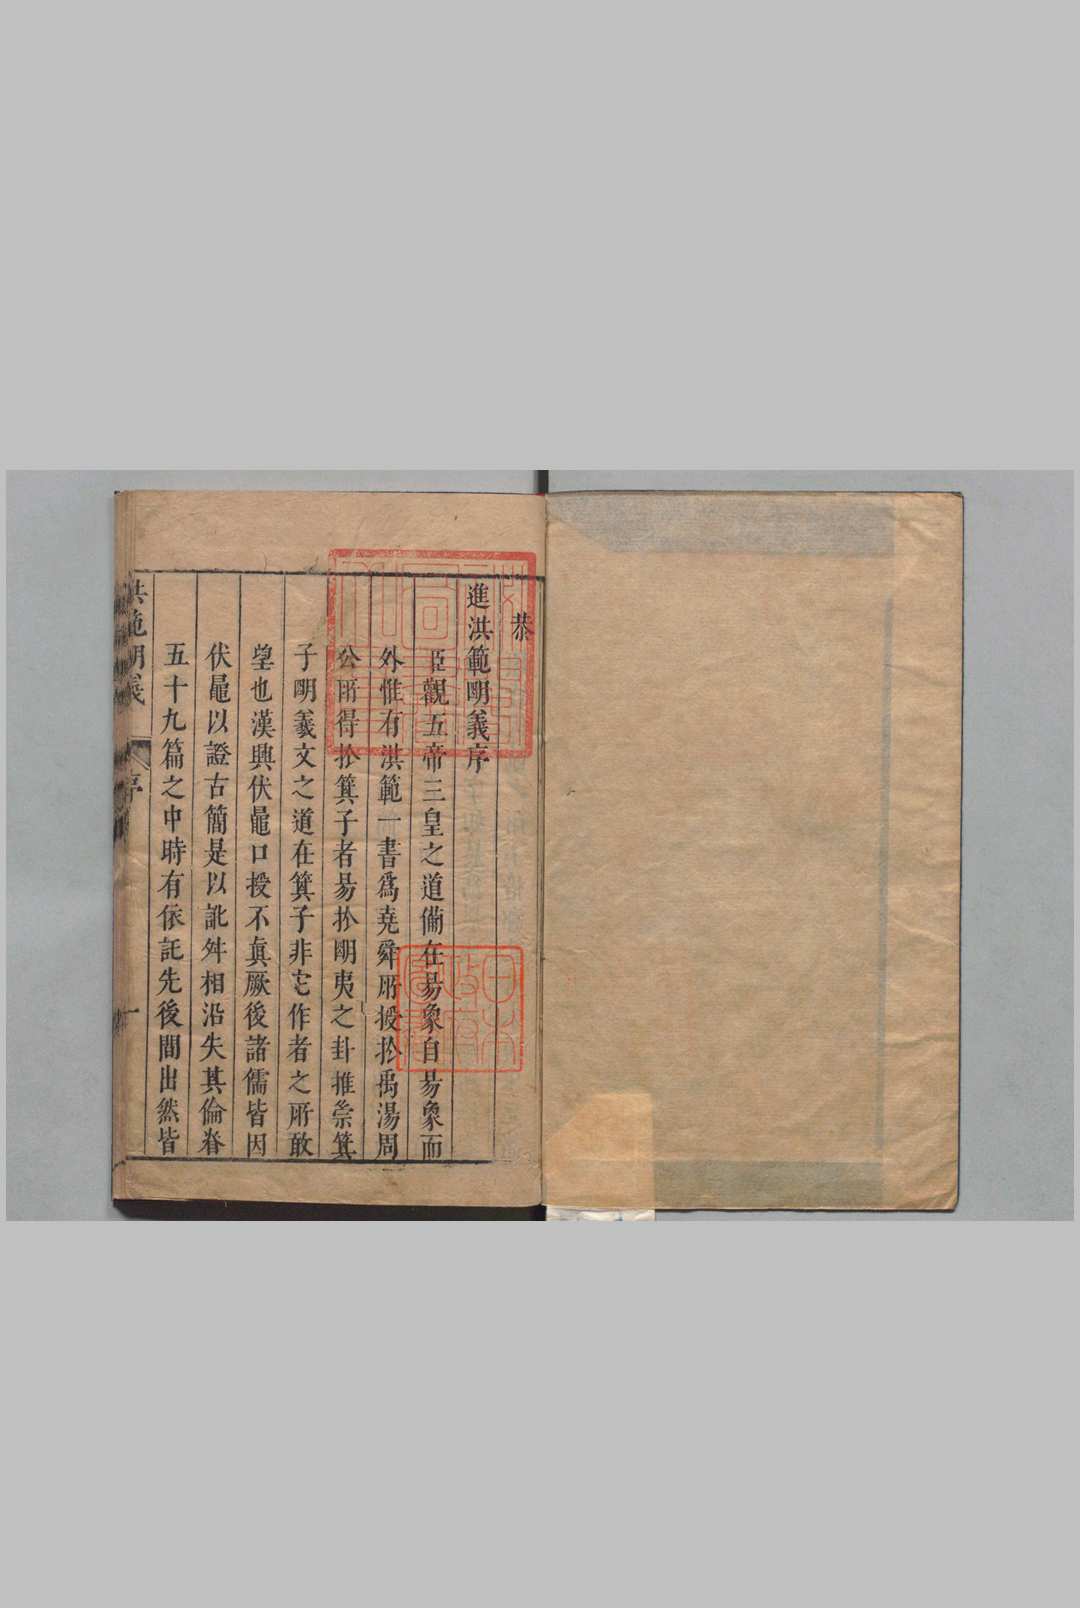 恭
進洪範明義序
臣觀五帝三皇之道備在易象自易象而
外惟有洪範一書爲堯舜所授於禹湯周
公所得於箕子者易於明夷之卦推崇箕
子明羲文之道在箕子非它作者之所敢
望也漢興伏鼂口授不真厥後諸儒皆因
伏鼂以證古簡是以訛舛相沿失其倫脊
五十九篇之中時有依託先後間出然皆
洪範明義 序 一